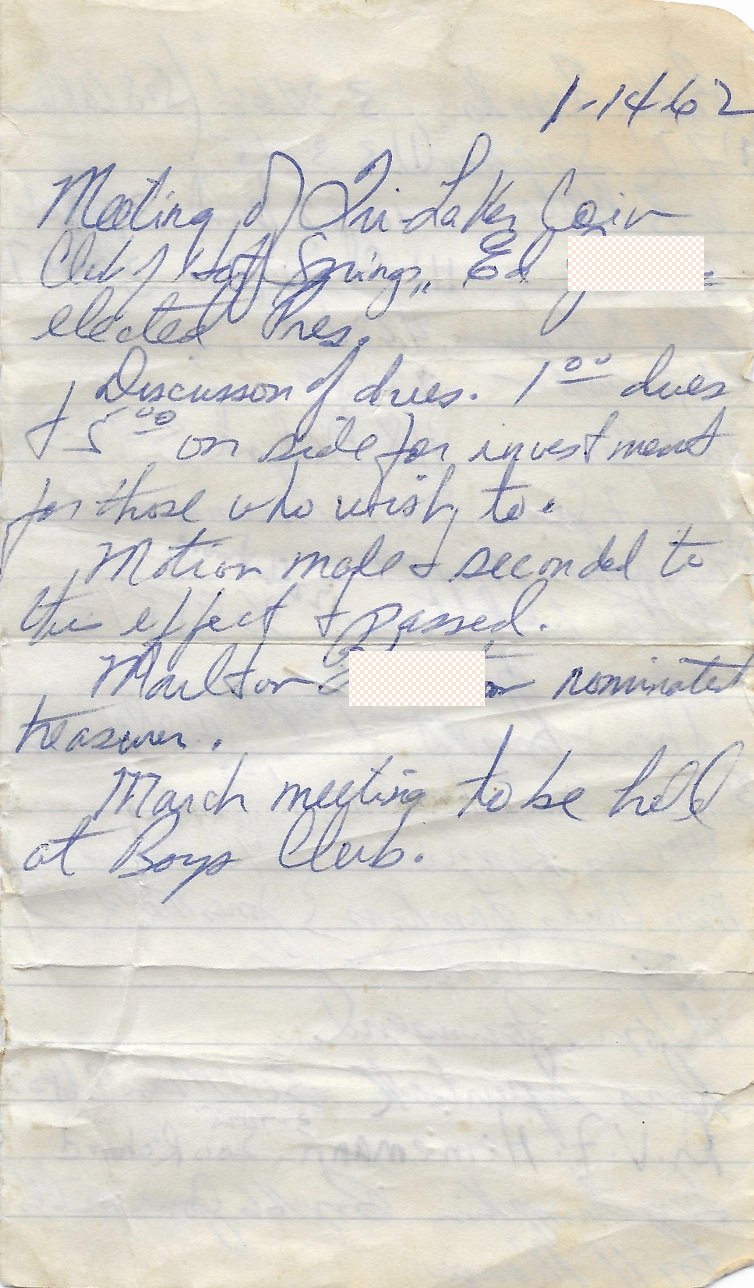 1-14 62
Meeting of Tri-Lakes Coin
Club of Hot Springs, Ed
elected Pres.
Discusson of dues. 1 00 dues
+ 5 00 on side for investment
for those who wish to.
Motion made + seconded to
this effect + passed.
nominated
treasurer.
March meeting to be held
at Boys Club.